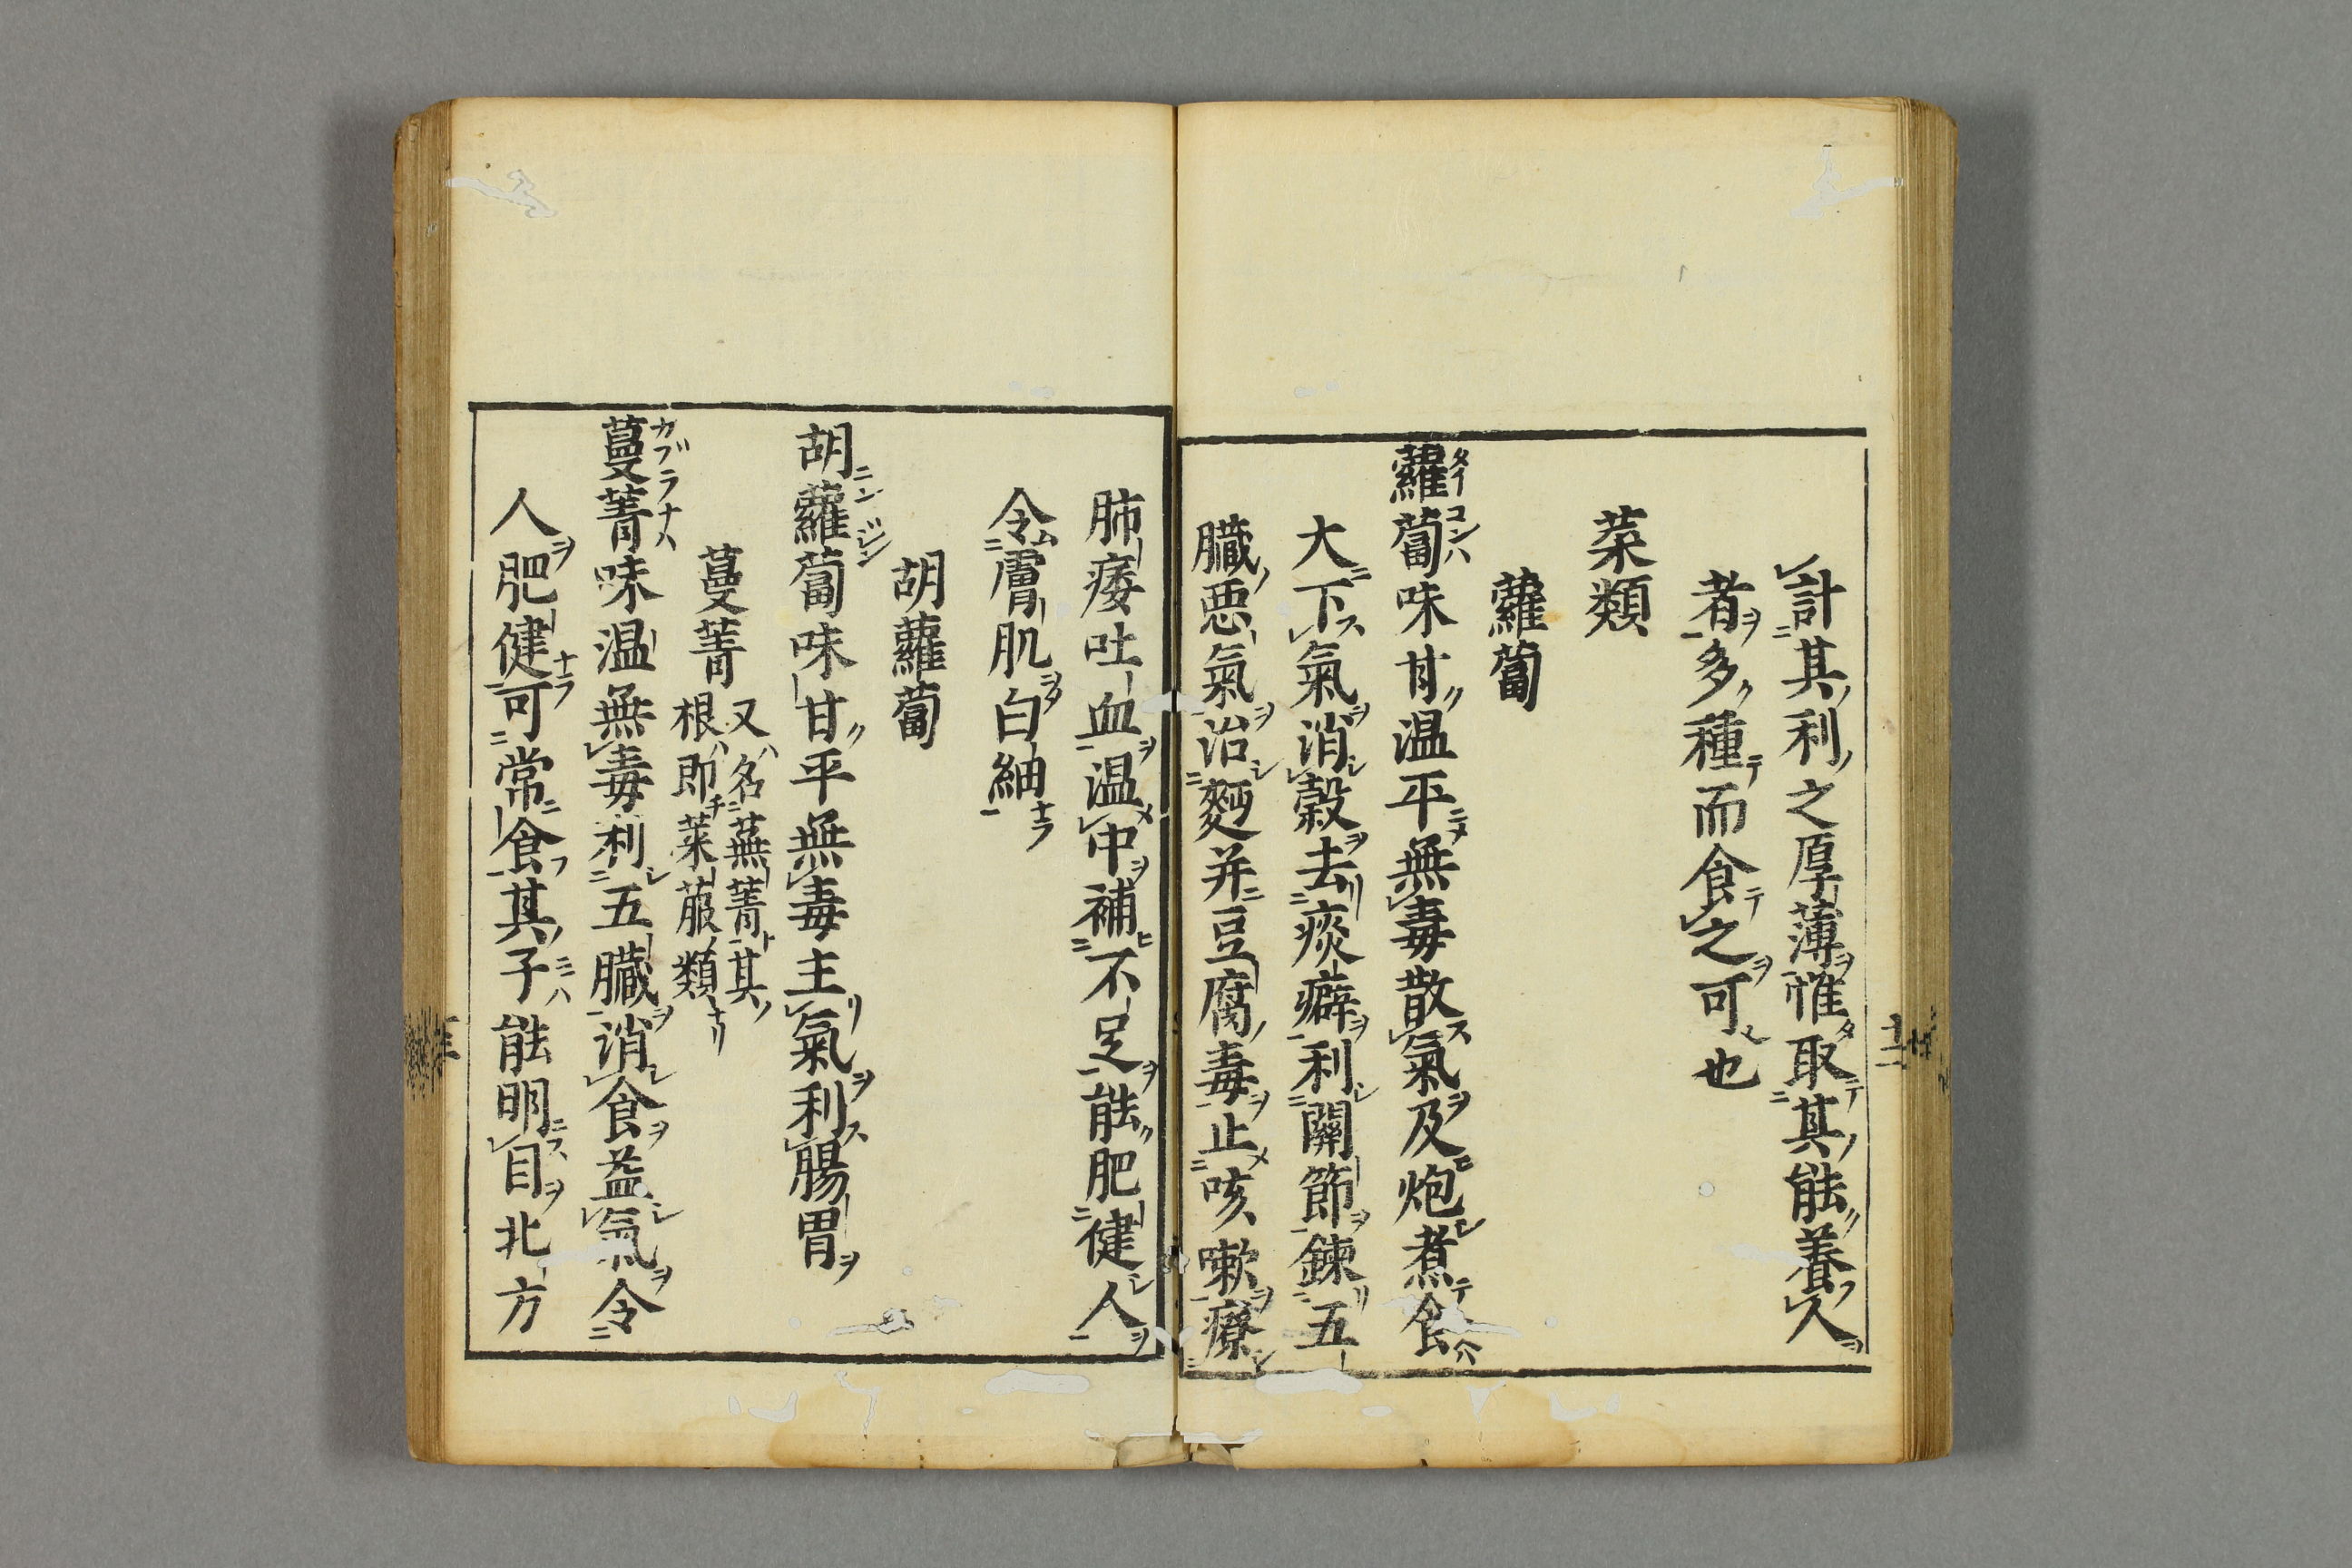 計其利之厚薄惟取其能養人
者多種而食之可也
菜類
蘿蔔
蘿蔔味甘温平無毒散氣及炮煮食
大下氣消穀去痰癖利關節鍊五
臓悪氣治麪并豆腐毒止咳嗽療
肺痿吐血温中補不足能肥健人
令膚肌白細
胡蘿蔔
胡蘿蔔味甘平無毒主氣利腸胃
蔓菁 又名蕪菁其
根即萊菔類
蔓菁味温無毒利五臓消食益氣令
人肥健可常食其子能明目北方